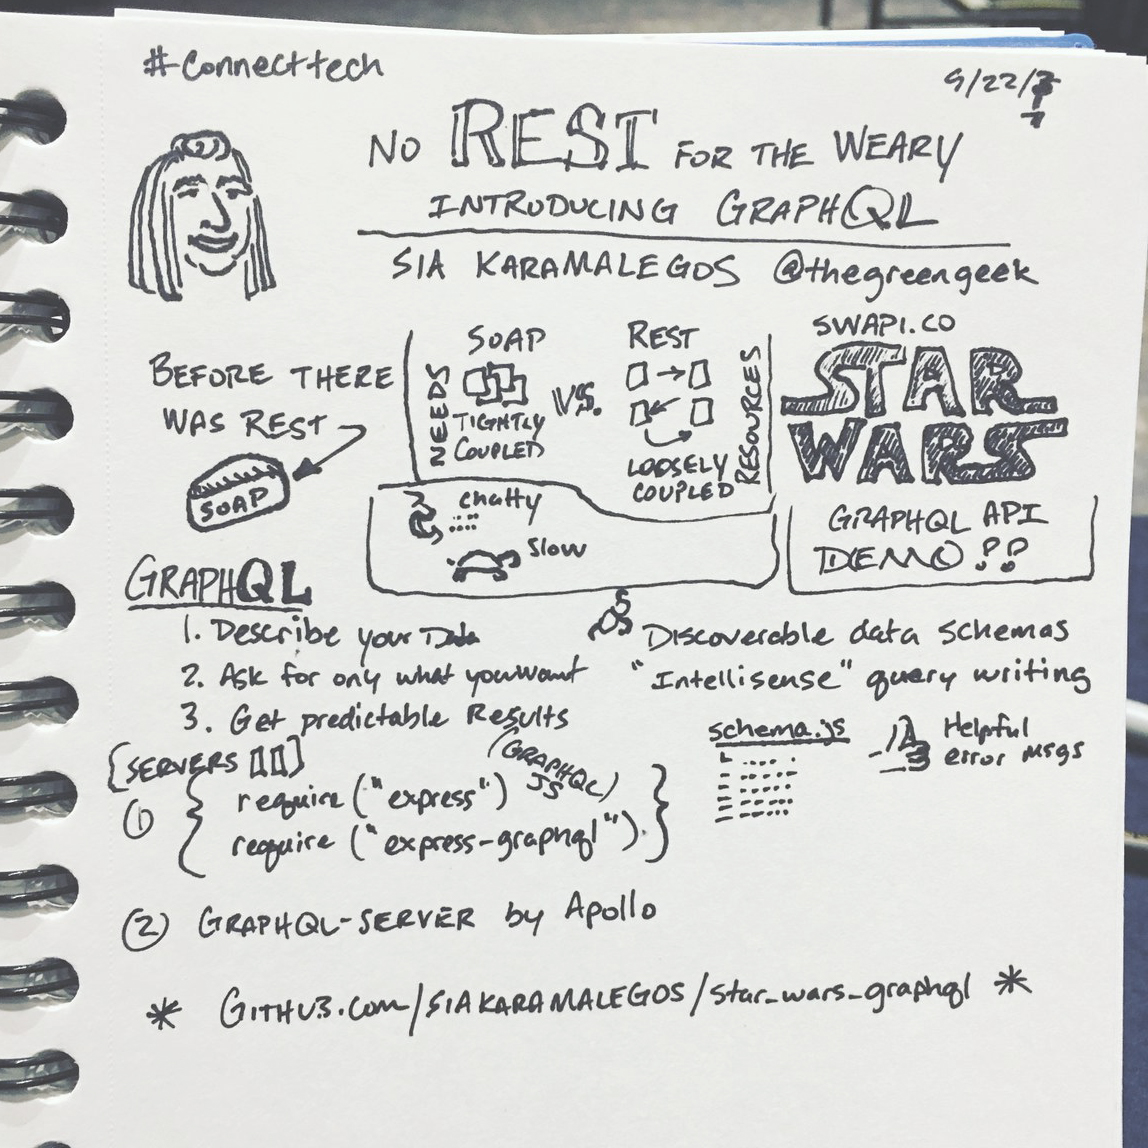 #Connecttech
9/22/17
NO REST FOR THE WEARY
INTRODUCING GRAPHQL
SIA KARAMALEGOS @thegreengeek
BEFORE THERE
WAS REST
SOAP
NEEDS
SOAP
TIGHTLY
COUPLED
VS.
REST
LOOSELY
COUPLED
RESOURCES
chatty
Slow
SWAPI.CO
STAR
WARS
GRAPHQL API
DEMO !!
GRAPHQL
1. Describe your Data
2. Ask for only what you want
3. Get predictable Results
Discoverable data schemas
"Intellisense" query writing
schema.js
Helpful
error msgs
[SERVERS]
(GRAPHQL
JS)
1 { require ("express")
require ("express-graphql") }
2 GRAPHQL-SERVER by Apollo
* GITHUB.com/SIAKARAMALEGOS/star_wars_graphql *